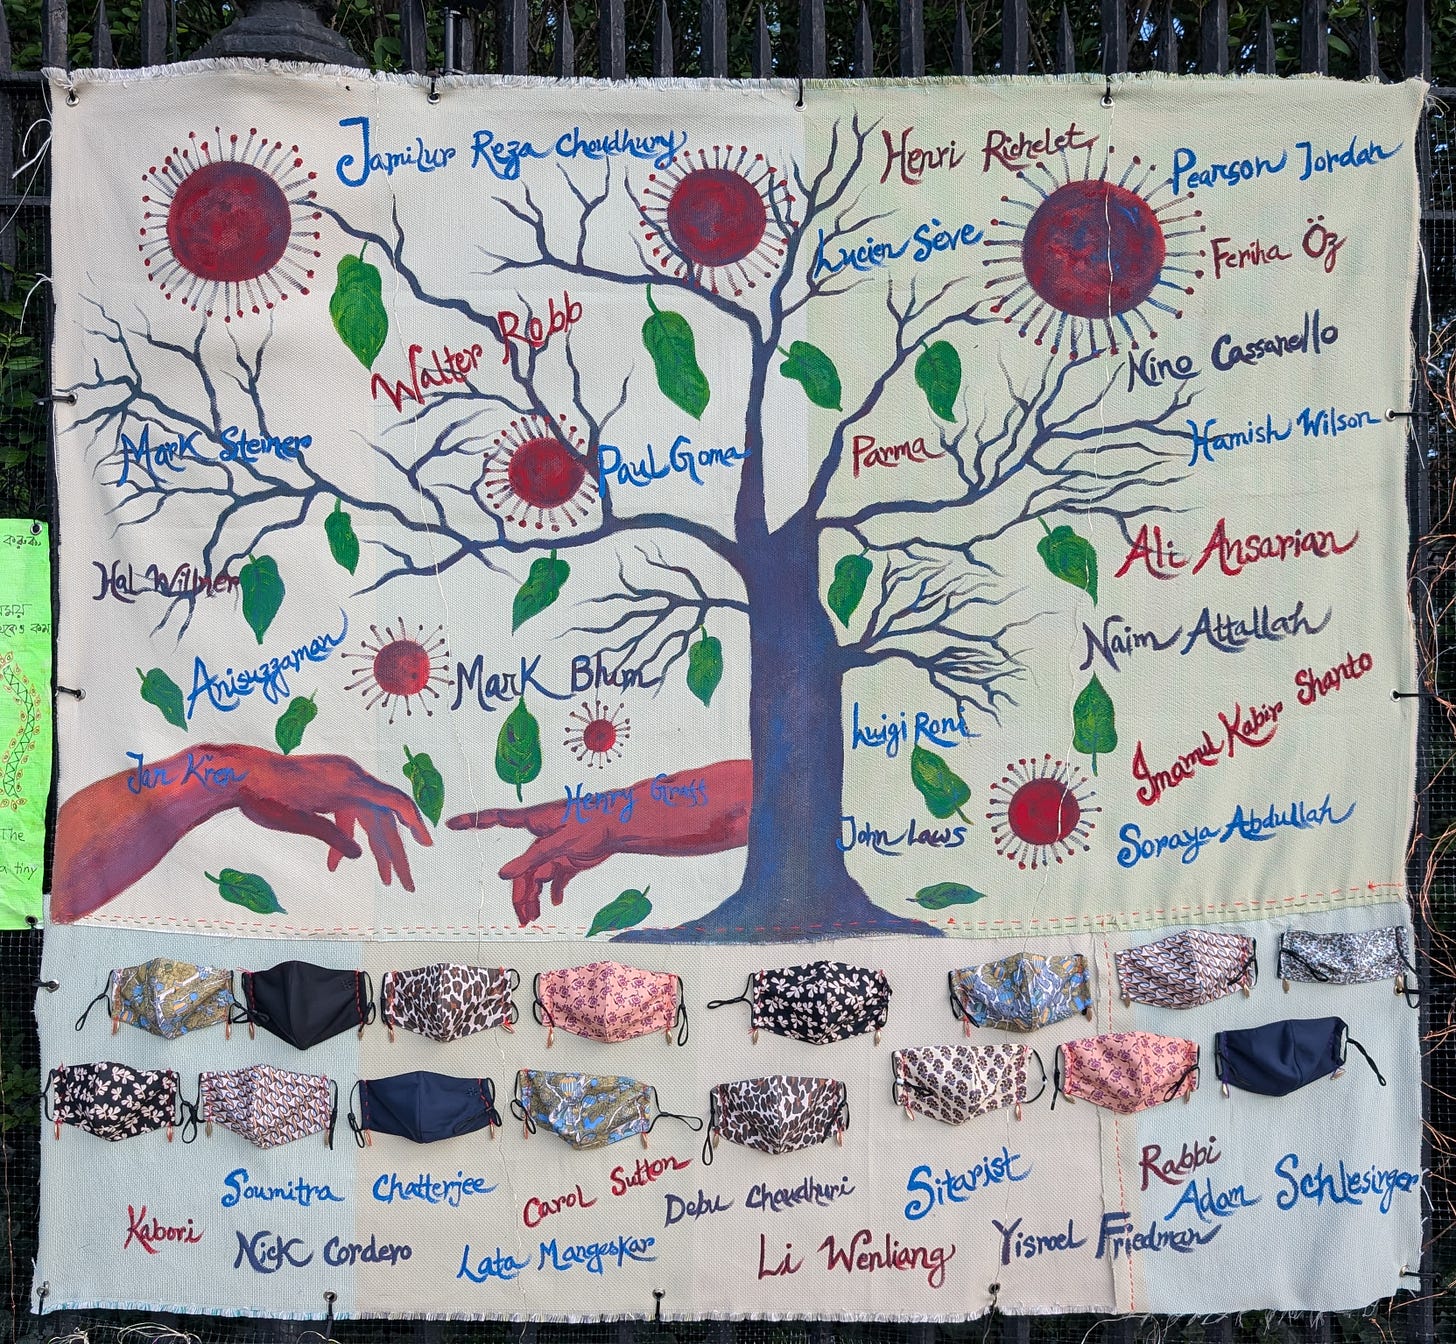 Jamilur Reza Choudhury
Henri Richelet
Pearson Jordan
Lucien Sève
Feriha Öz
Walter Robb
Nino Cassanello
Mark Steiner
Paul Goma
Parma
Hamish Wilson
Ali Ansarian
Hal Willner
Naim Attallah
Anisuzzaman
Mark Blum
Imamul Kabir Shanto
Luigi Roni
Jan Křen
Henry Graff
John Laws
Soraya Abdullah
The
a tiny
Soumitra Chatterjee
Carol Sutton
Debu Chaudhuri
Sitarist
Rabbi
Adam Schlesinger
Kabori
Nick Cordero
Lata Mangeskar
Li Wenliang
Yisroel Friedman